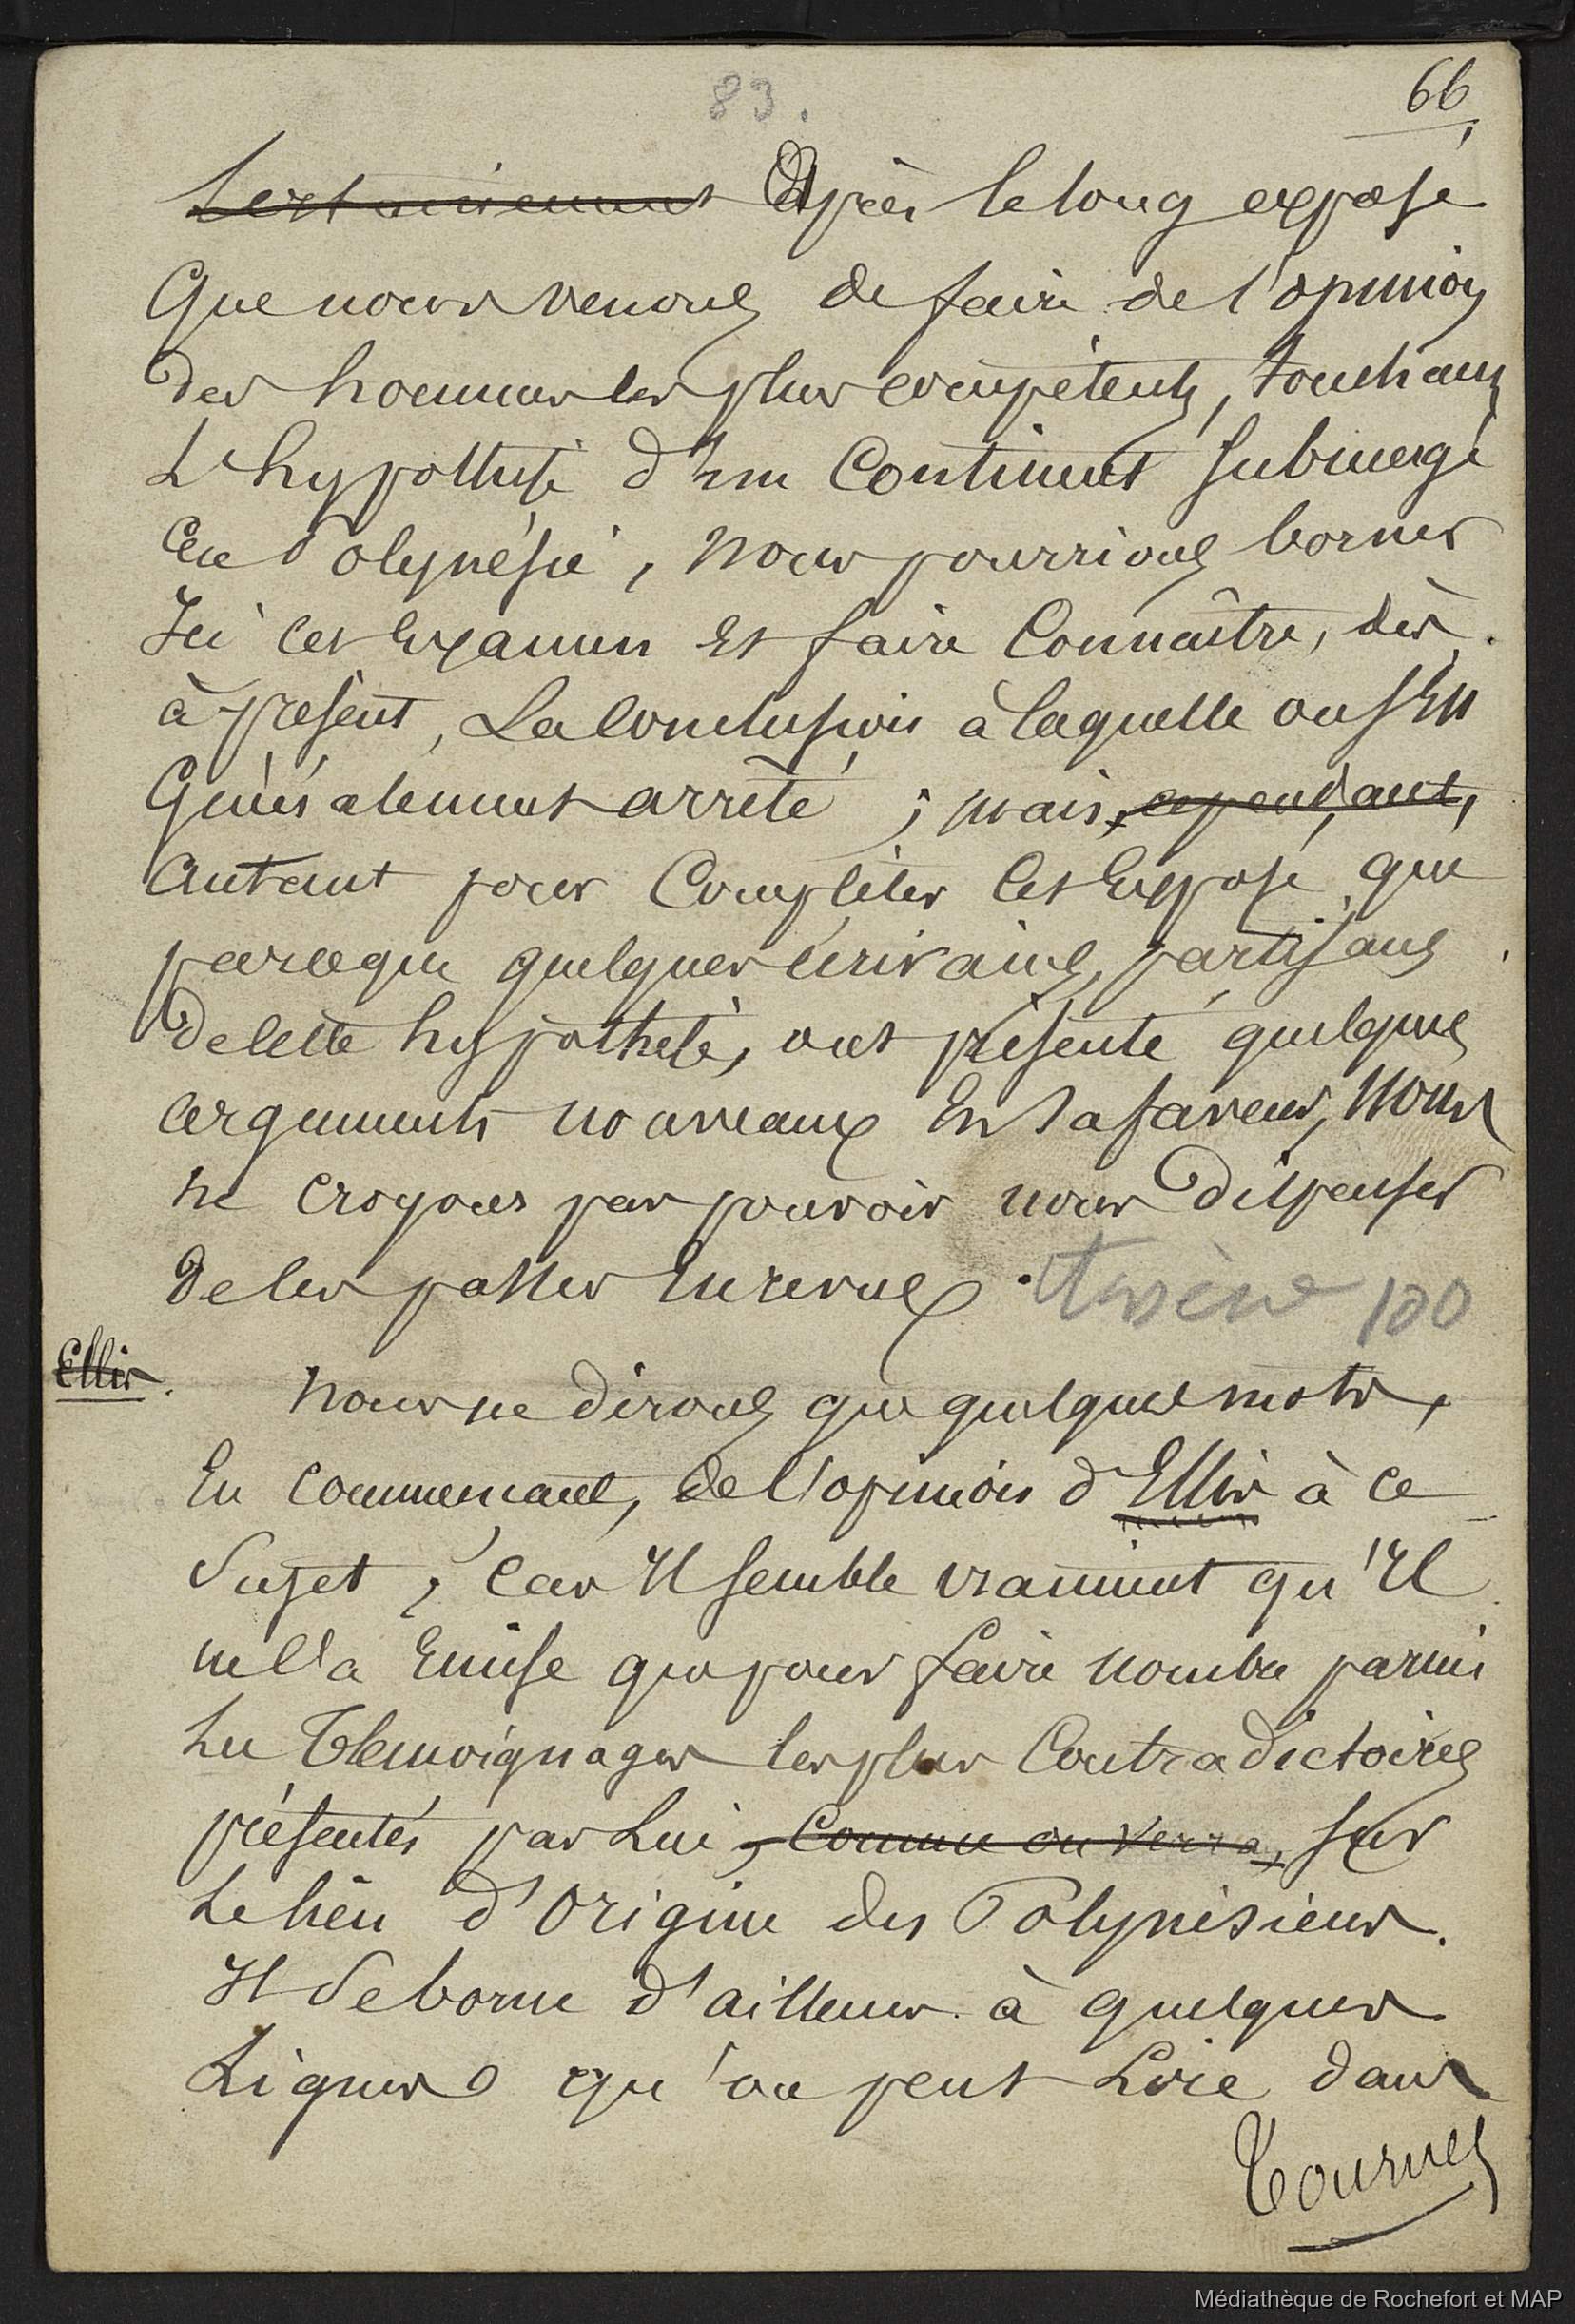 83.
66
Certainement Après le long exposé
que nous venons de faire de l'opinion
des hommes les plus compétents, touchant
L'hypothèse d'un Continent submergé
en Polynésie, nous pourrions borner
Ici cet Examen et faire Connaître, dès
à présent, La Conclusion à laquelle on s'est
Généralement arrêté ; mais, cependant,
autant pour Compléter cet Exposé, que
parceque quelques écrivains, partisans
de cette hypothèse, ont présenté quelques
arguments nouveaux En sa faveur, nous
ne croyons pas pouvoir nous dispenser
de les passer En revue. 100
Ellis.
Nous ne dirons que quelques mots,
En commençant, de l'opinion d'Ellis à ce
Sujet ; Car Il semble vraiment qu'Il
ne l'a Emise que pour faire nombre parmi
Les Témoignages les plus Contradictoires
présentés par Lui, Comme on verra, sur
Le lieu d'Origine des Polynésiens.
Il Se borne d'ailleurs à quelques
Lignes qu'on peut Lire dans
Tournez
Médiathèque de Rochefort et MAP